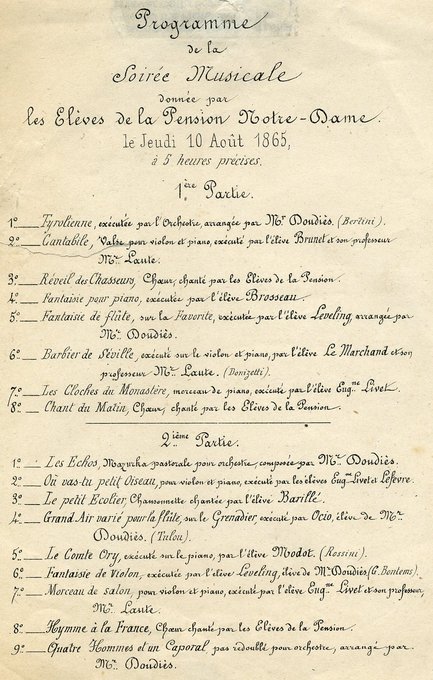 Programme
de la
Soirée Musicale
donnée par
les Elèves de la Pension Notre-Dame.
le Jeudi 10 Août 1865,
à 5 heures précises.
1ère Partie.
1º Tyrolienne, exécutée par l'Orchestre, arrangée par Mr Doudiès. (Bertini).
2º Cantabile, Valse pour violon et piano, exécuté par l'élève Brunet et son professeur
Mr. Laute.
3º Réveil des Chasseurs, Chœur, chanté par les Elèves de la Pension.
4º Fantaisie pour piano, exécutée par l'élève Brosseau.
5º Fantaisie de flûte, sur la Favorite, exécutée par l'élève Leveling, arrangée par
Mr. Doudiès.
6º Barbier de Séville, exécuté sur le violon et piano, par l'élève Le Marchand et son
professeur Mr. Laute. (Donizetti).
7º Les Cloches du Monastère, morceau de piano, exécuté par l'élève Eugme Livet.
8º Chant du Matin, Chœur, chanté par les Elèves de la Pension.
2ième Partie.
1º Les Echos, Mazurka pastorale pour orchestre, composée par Mr. Doudiès.
2º Où vas-tu petit Oiseau, pour violon et piano, exécuté par les élèves Eugme Livet et Lefèvre.
3º Le petit Ecolier, Chansonnette chantée par l'élève Barillé.
4º Grand Air varié pour la flûte, sur le Grenadier, exécuté par Ocio, élève de Mr.
Doudiès. (Tulou).
5º Le Comte Ory, exécuté sur le piano, par l'élève Modot. (Rossini).
6º Fantaisie de Violon, exécutée par l'élève Leveling, élève de Mr Doudiès (G. Bontems).
7º Morceau de salon, pour violon et piano, exécuté par l'élève Eugme Livet et son professeur,
Mr. Laute.
8º Hymme à la France, Chœur chanté par les Elèves de la Pension.
9º Quatre Hommes et un Caporal, pas redoublé pour orchestre, arrangé par
Mr. Doudiès.